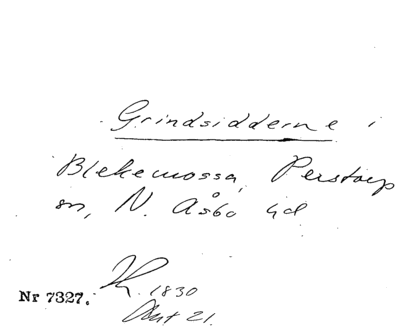 Grindsidderne i
Blekemossa, Perstorp
sn, N. Åsbo hd
1830
Nr 7327.
21.